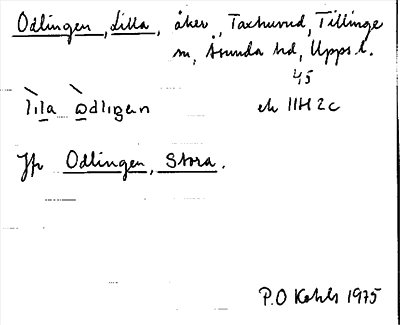 Odlingen, Lilla, åker, Taxhuvud, Tillinge
sn, Åsunda hd, Upps. l.
45
lila odligen ek 11H 2c
Jfr Odlingen, Stora.
P.O 1975